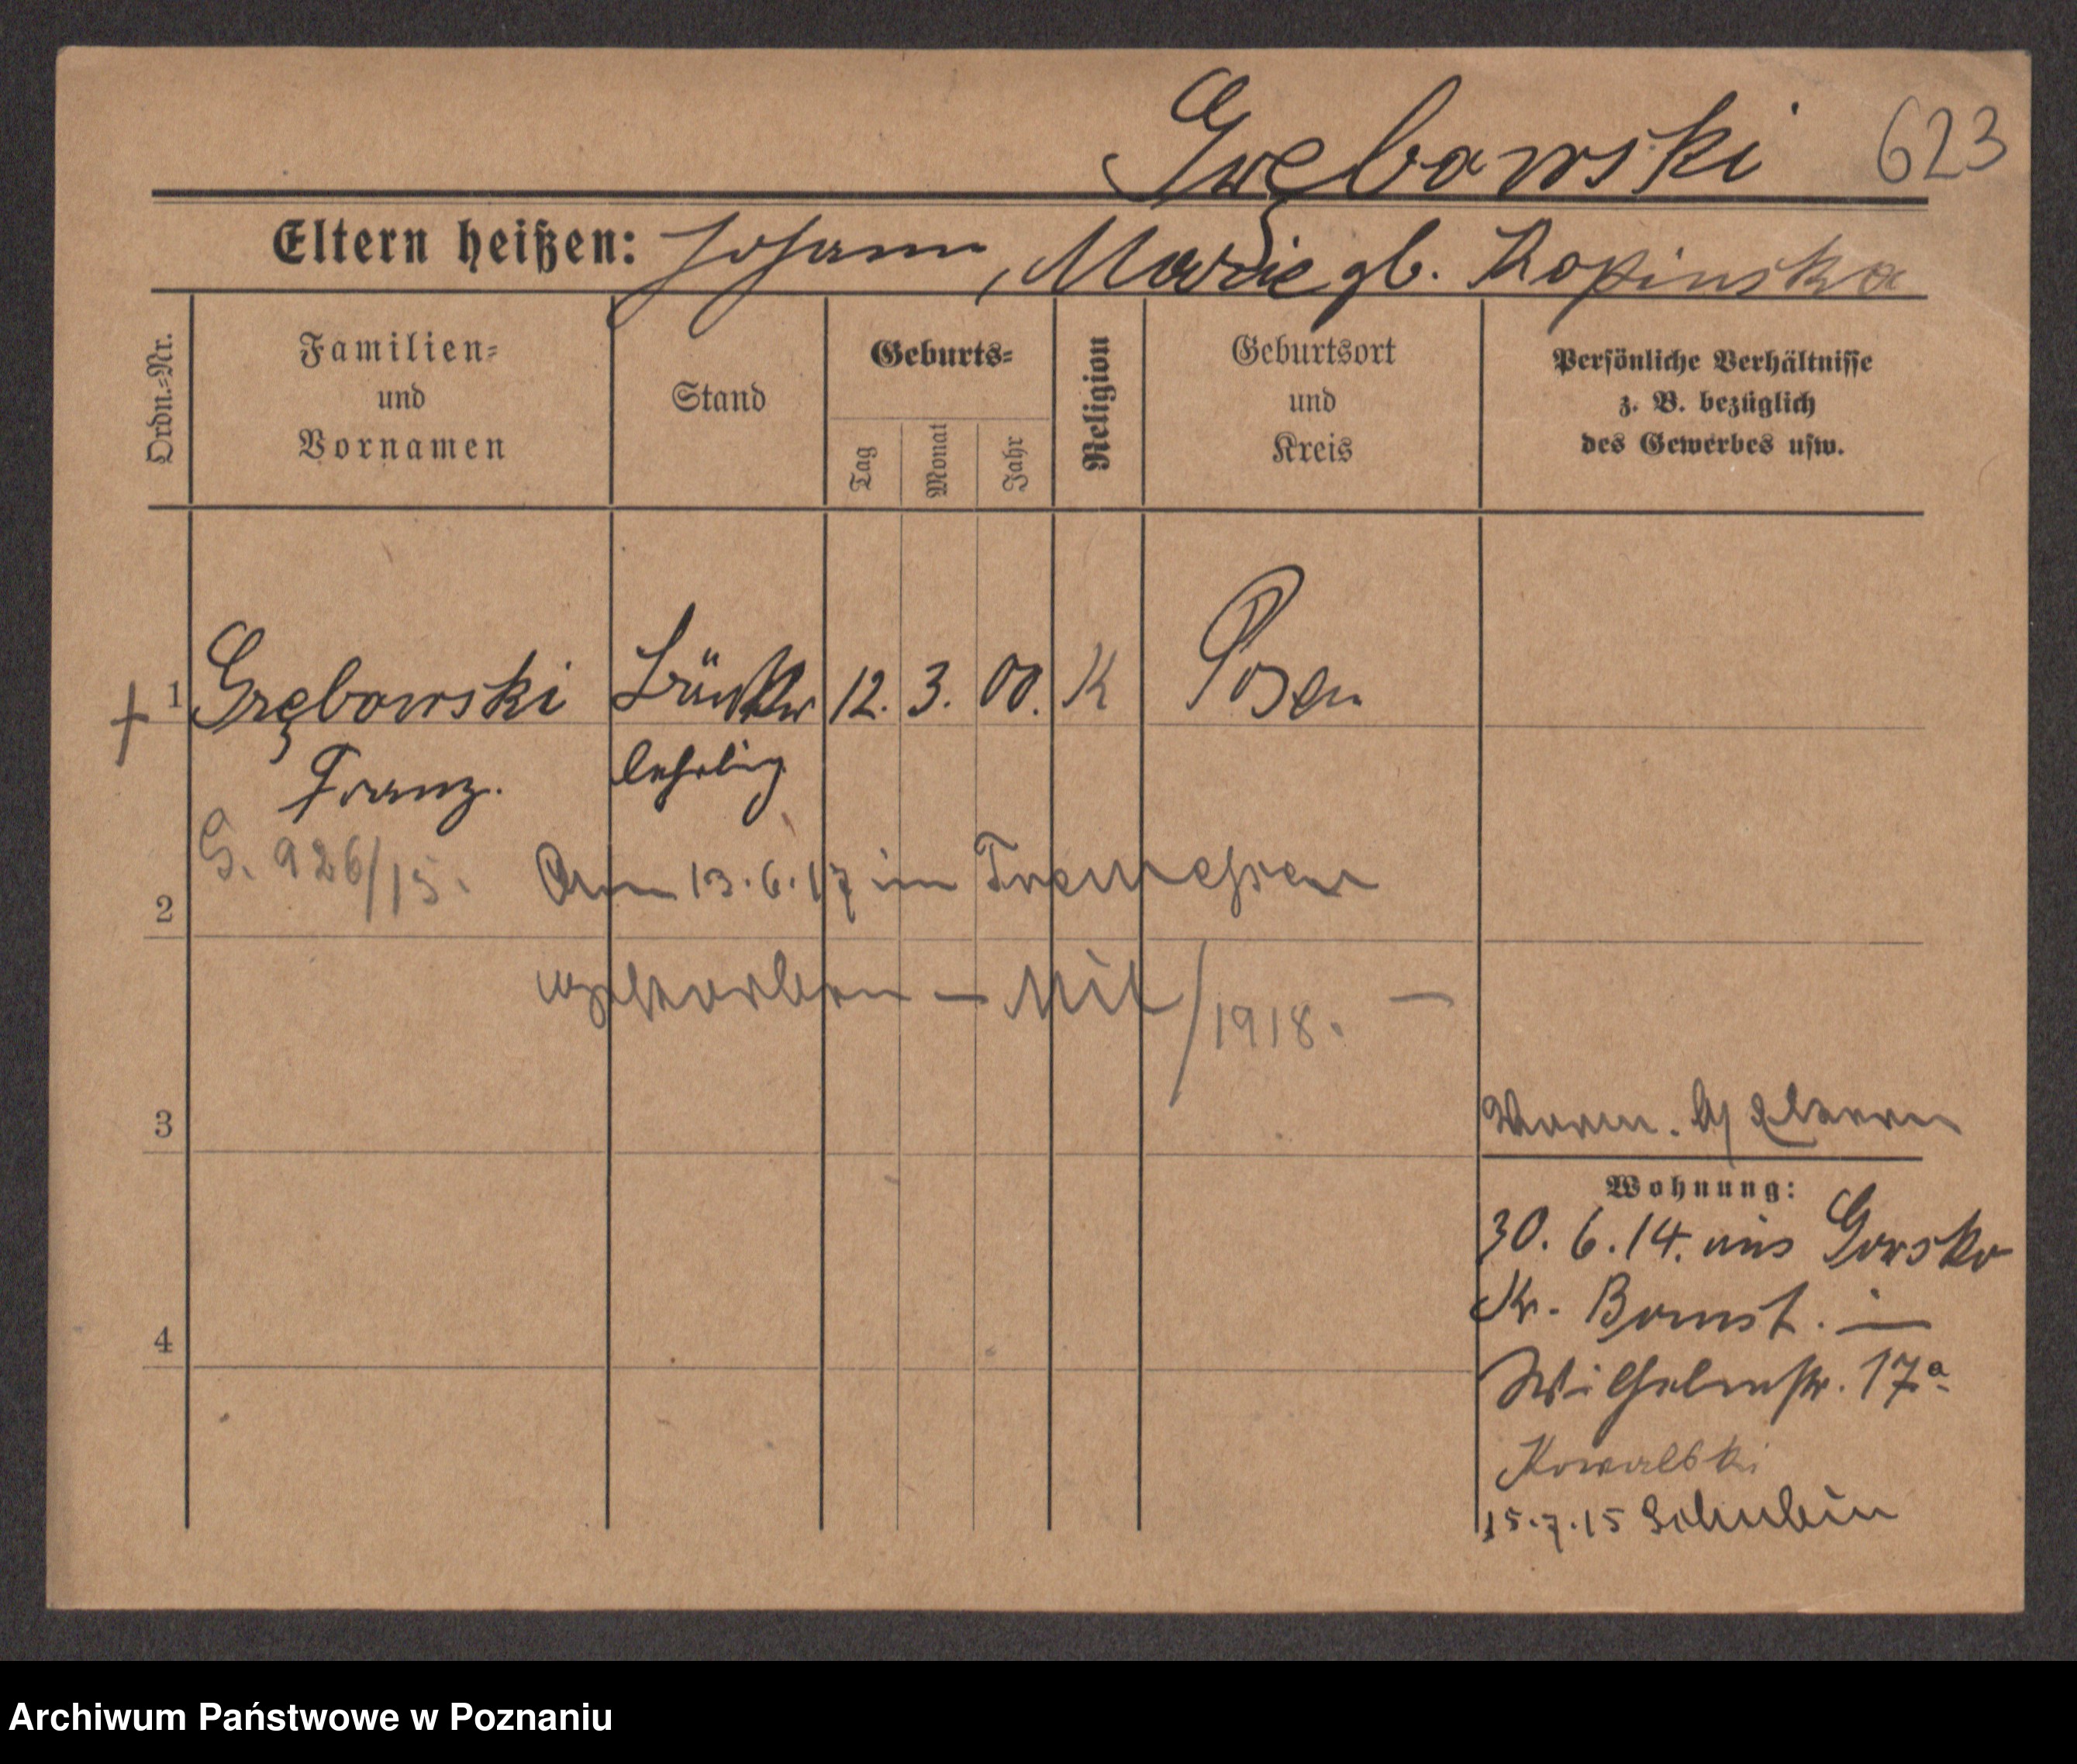 Grębowski 623
Eltern heißen: Johann, Marie gb. Kopinska
Ordn.-Nr.
Familien-
und
Vornamen
Stand
Geburts-
Tag
Monat
Jahr
Religion
Geburtsort
und
Kreis
Persönliche Verhältnisse
z. B. bezüglich
des Gewerbes usw.
1 Grębowski 12. 3. 00. K Posen
Franz. lehrling
G. 926/15. Am 13.6.17 in Tremessen
2
verstorben – Mil/1918. –
3
Eltern
Wohnung:
30. 6. 14. aus Gorsko
Kr. Bomst. –
4
Wilhelmstr. 17a
Kowalski
15.7.15 Schubin
Archiwum Państwowe w Poznaniu